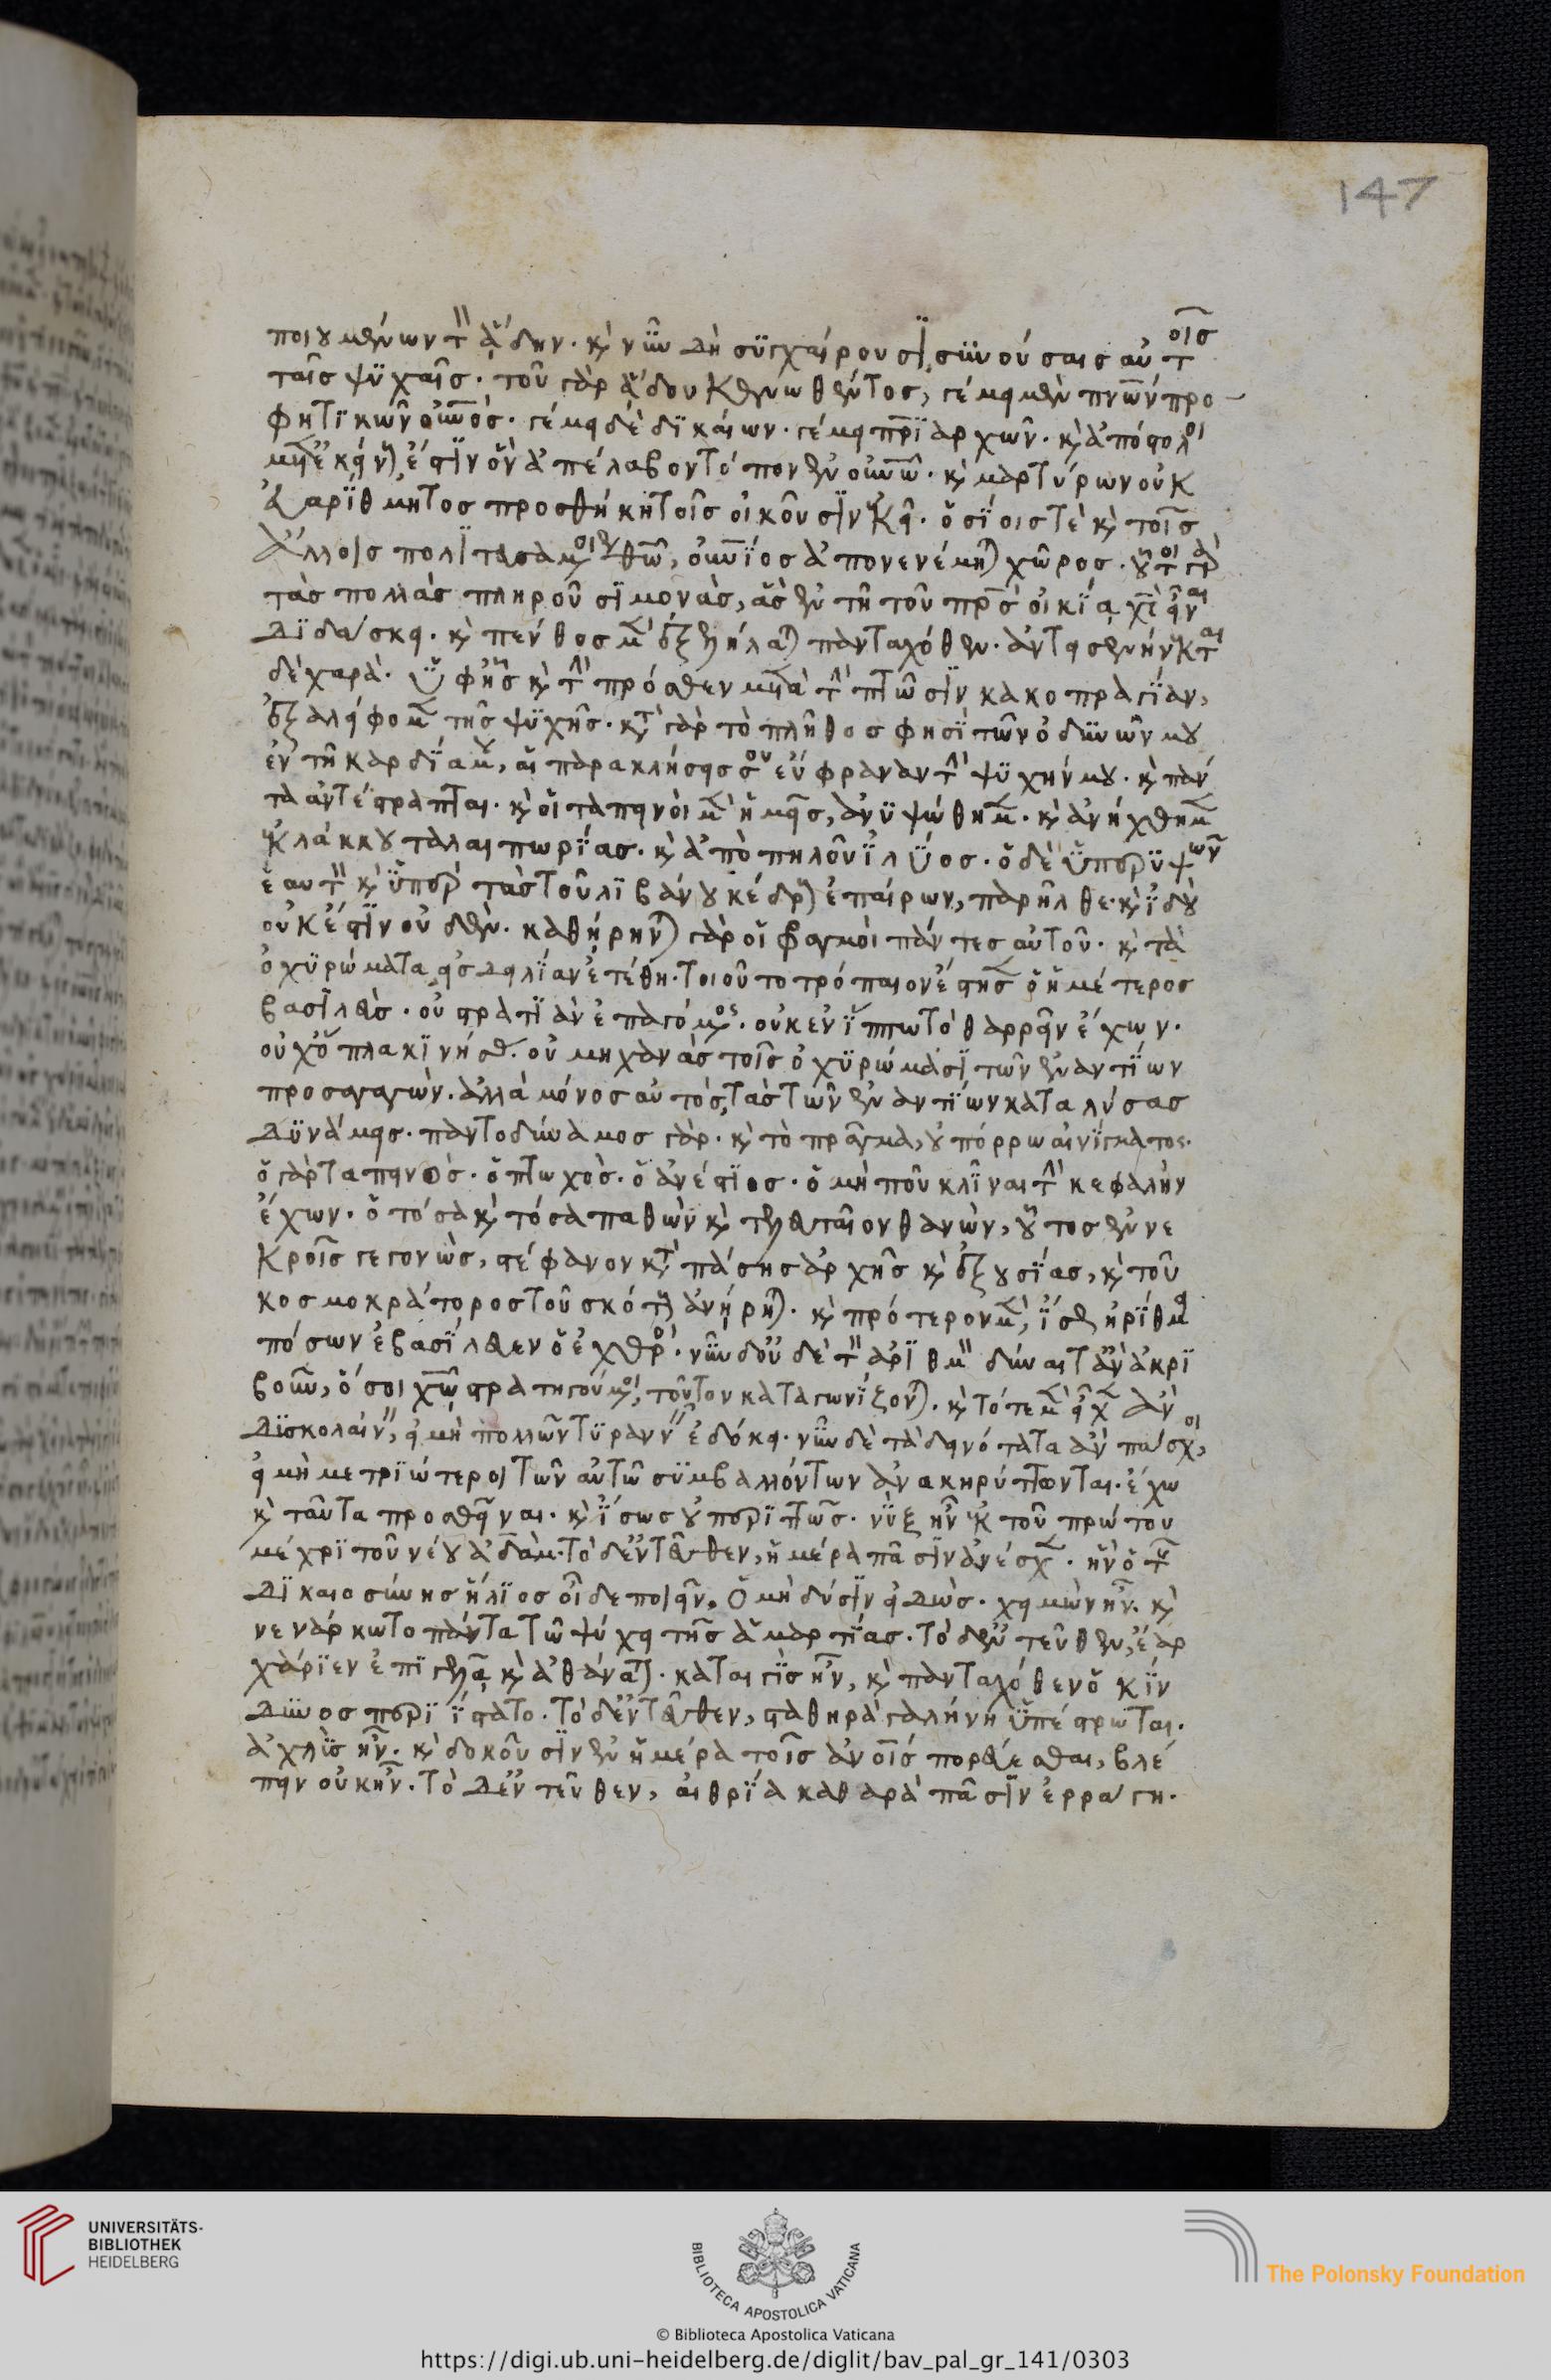 147
ποιουμένων τὸν ἅδην. καὶ νῦν δὴ συγχαίρουσι, συνούσαις αὐτοῖς
ταῖς ψυχαῖς. τοῦ γὰρ ἅδου κενωθέντος, γέμει μὲν πνῶν προ
φητικῶν οὐνός. γέμει δὲ δικαίων. γέμει πριαρχῶν. καὶ ἀπόστολοι
ἔστιν ὃν ἀπέλαβον τόπον ἐν οὐνῷ. καὶ μαρτύρων οὐκ
ἀναρίθμητος προσθήκη τοῖς οἰκοῦσιν ἐκεῖ. ὁσίοις τὲ καὶ τοῖς
ἄλλοις θῶ, οὐνιος ἀπονενέμηται χῶρος. οὗτοι γὰρ
τὰς πολλὰς πληροῦσι μονὰς, ἃς ἐν τῆ τοῦ πρς οἰκία χς εἶναι
διδάσκει. καὶ πένθος μὲν ἐξελήλαται πανταχόθεν. ἀντεισενήνεκται
δὲ χαρὰ. ὑφ' ἧς καὶ τὴν πρόσθεν μετὰ τὴν πτῶσιν κακοπραγίαν,
ἐξαλείφομεν τῆς ψυχῆς. κατὰ γὰρ τὸ πλῆθος φησὶ τῶν ὀδυνῶν μου
ἐν τῆ καρδία μου, αἱ παρακλήσεις σου εὔφραναν τὴν ψυχήν μου. καὶ πάν
τα ἀντέστραπται. καὶ οἱ ταπεινοὶ μὲν ἡμεῖς, ἀνυψώθημεν. καὶ ἀνήχθημεν
ἐκ λάκκου ταλαιπωρίας. καὶ ἀπὸ πηλοῦ ἰλύος. ὁ δὲ ὑπερυψῶν
ἑαυτὸν καὶ ὑπὲρ τὰς τοῦ λιβάνου κέδρους ἐπαίρων, παρῆλθε. καὶ ἰδοὺ
οὐκέστιν οὐδέν. καθήρηνται γὰρ οἱ φραγμοὶ πάντες αὐτοῦ. καὶ τὰ
ὀχυρώματα εἰς δειλίαν ἐτέθη. τοιοῦτο τρόπαιον ἔστησεν ὁ ἡμέτερος
βασιλεὺς. οὐ στρατιὰν ἐπαγόμενος. οὐκ ἐν ἵππω τὸ θαρρεῖν ἔχων.
οὐχ ὅπλα κινήσας. οὐ μηχανὰς τοῖς ὀχυρώμασι τῶν ἐναντίων
προσαγαγών. ἀλλὰ μόνος αὐτὸς, τὰς τῶν ἐναντίων καταλύσας
δυνάμεις. παντοδύναμος γάρ. καὶ τὸ πρᾶγμα, οὐ πόρρω αἰνίγματος.
ὁ γὰρ ταπεινὸς. ὁ πτωχὸς. ὁ ἀνέστιος. ὁ μὴ ποῦ κλῖναι τὴν κεφαλὴν
ἔχων. ὁ τόσα καὶ τόσα παθὼν καὶ τελευταῖον θανὼν, οὗτος ἐν νε
κροῖς γεγονὼς, στέφανον κατὰ πάσης ἀρχῆς καὶ ἐξουσίας, καὶ τοῦ
κοσμοκράτορος τοῦ σκότους ἀνήρηται. καὶ πρότερον μὲν, ἴσως ἠρίθμει
πόσων ἐβασίλευεν ὁ ἐχθρός. νῦν δ' οὐδὲ τὸν ἀριθμὸν δύναιτ' ἂν ἀκρι
βοῦν, ὅσοι χῶ στρατηγούμενοι, τοῦτον καταγωνίξονται. καὶ τότε μὲν εἶχεν ἂν
δύσκολον, εἰ μὴ πολλῶν τύραννος ἐδόκει. νῦν δὲ τὰ δεινότατα ἂν πάσχοι,
εἰ μὴ μετριώτεροι τῶν αὐτῶ συμβαλλόντων ἀνακηρύττονται. ἔχω
καὶ ταῦτα προσθεῖναι. καὶ ἴσως οὐ περιττῶς. νὺξ ἦν ἐκ τοῦ πρώτου
μέχρι τοῦ νέου ἀδάμ. τὸ δ' ἐντεῦθεν, ἡμέρα πᾶσιν ἀνέσχεν. ἣν ὁ τῆς
δικαιοσύνης ἥλιος οἶδε ποιεῖν, ὁ μὴ δύσιν εἰδὼς. χειμὼν ἦν. καὶ
νενάρκωτο πάντα τῶ ψύχει τῆς ἁμαρτίας. τὸ δ' ἐντεῦθεν, ἔαρ
χάριεν ἐπιγελᾶ καὶ ἀθάνατον. καταιγὶς ἦν, καὶ πανταχόθεν ὁ κίν
δυνος περιίστατο. τὸ δ' ἐντεῦθεν, σταθηρὰ γαλήνη ὑπέστρωται.
ἀχλὺς ἦν. καὶ δοκοῦσιν ἐν ἡμέρα τοῖς ἀνοις πορεύεσθαι, βλέ
πειν οὐκ ἦν. τὸ δ' ἐντεῦθεν, αἰθρία καθαρὰ πᾶσιν ἐρράγη.
UNIVERSITÄTS-
BIBLIOTHEK
HEIDELBERG
BIBLIOTECA APOSTOLICA VATICANA
The Polonsky Foundation
© Biblioteca Apostolica Vaticana
https://digi.ub.uni-heidelberg.de/diglit/bav_pal_gr_141/0303